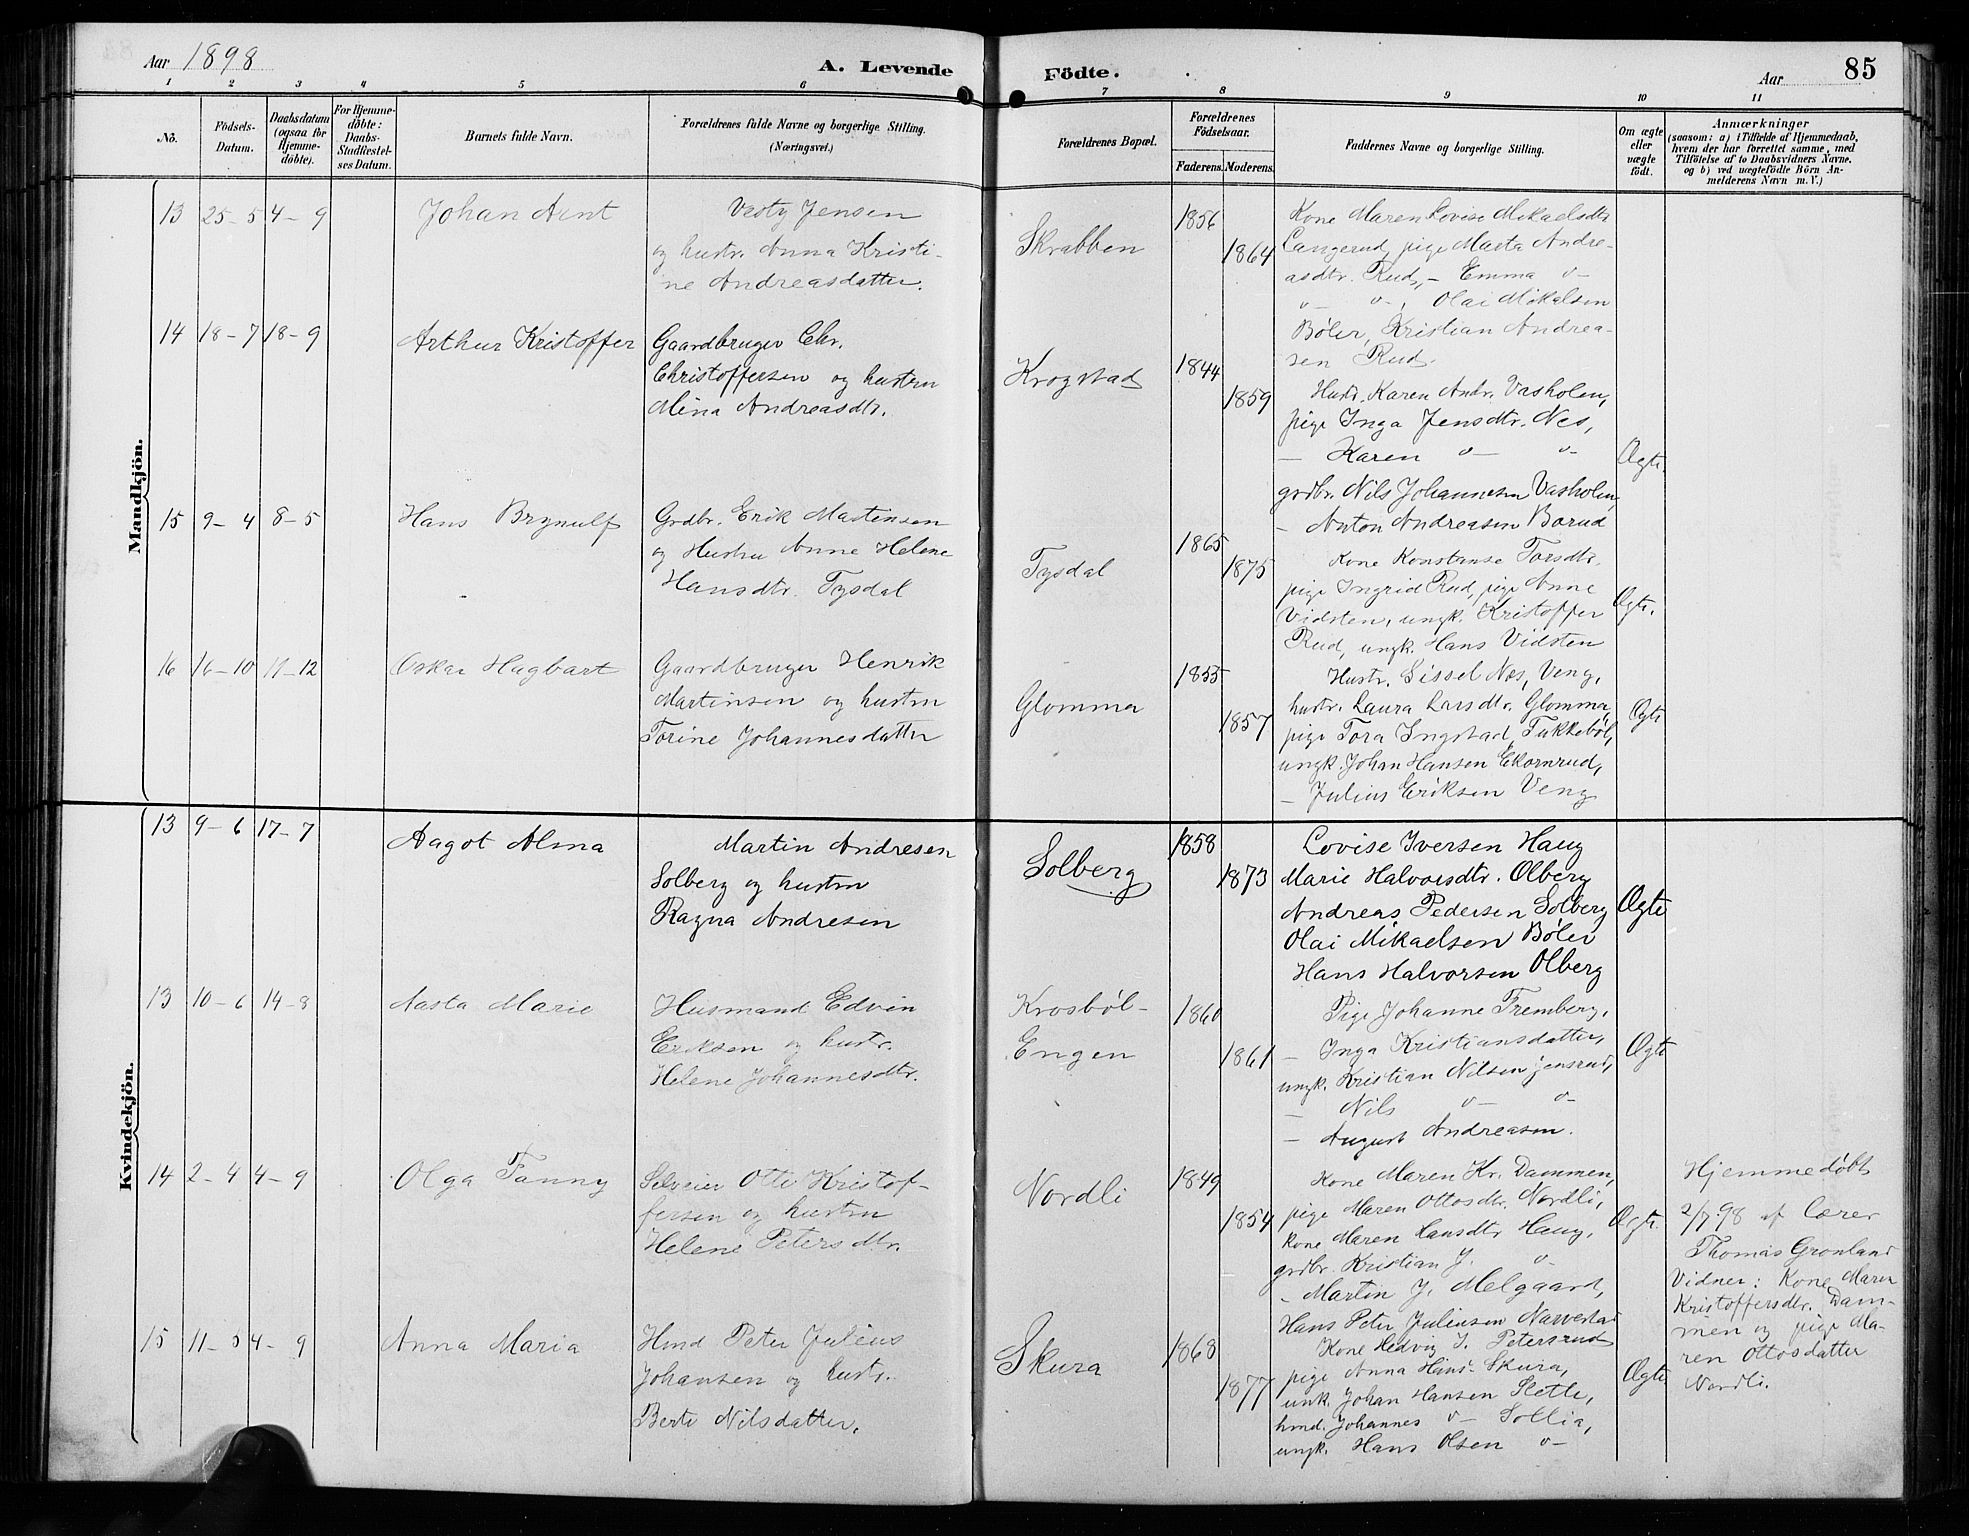 Aar 1898
A. Levende Födte.
Aar
85
1 2 3 4 5 6 7 8 9 10 11
No.
Födsels-Datum.
Daabsdatum (ogsaa for Hjemme-döbte).
For Hjemme-döbte: Daabs-Stadfæstel-ses Datum.
Barnets fulde Navn.
Forældrenes fulde Navne og borgerlige Stilling. (Næringsvei.)
Forældrenes Bopæl.
Forældrenes Födselsaar.
Faderens. Moderens.
Faddernes Navne og borgerlige Stilling.
Om ægte eller uægte födt.
Anmærkninger
(saasom: a) i Tilfælde af Hjemmedaab,
hvem der har forrettet samme, med
Tilföielse af to Daabsvidners Navne,
og b) ved uægtefödte Börn An-
melderens Navn m. V.)
Mandkjön.
13 25-5 4-9 Johan Arnt
Jensen
og hustr. Anna Kristi-
ne Andreasdatter.
Skrabben
1856
1864
Kone Maren Lovise Mikaelsdtr
Langerud, pige Marta Andre-
asdtr. Rud, - Emma o-
o- o-, Olai Mikalsen
Bøler, Kristian Andrea-
sen Rud.
14 18-7 18-9 Arthur Kristoffer
Gaardbruger Chr.
Christoffersen og hustru
Mina Andreasdtr.
Krogstad
1844
1859
Hustr. Karen Andr. Vasholen,
pige Inga Jensdtr. Nes,
- Karen o- o-
grdbr. Nils Johannesen Vasholen,
- Anton Andreasen Borud
Ægte
15 9-4 8-5 Hans Brynulf
Grdbr. Erik Martensen
og Hustru Anne Helene
Hansdtr. Tysdal
Tysdal
1865
1875
Kone Konstanse Torsdtr.
pige Ingrid Rud, pige Anne
Vidsten, ungk. Kristoffer
Rud, ungk. Hans Vidsten
Ægte.
16 16-10 11-12 Oskar Hagbart
Gaardbruger Henrik
Martinsen og hustru
Torine Johannesdatter
Glomma
1855
1857
Hustr. Sissel Nes, Veng,
hustr. Laura Larsdtr. Glomma,
pige Tora Ingstad, Tukkebøl,
ungk. Johan Hansen Ekornrud,
- Julius Eriksen Veng
Ægte
Kvindekjön.
13 9-6 17-7 Aagot Alma
Martin Andresen
Solberg og hustru
Ragna Andresen
Solberg
1858
1873
Lovise Iversen Haug
Marie Halvorsdtr. Olberg
Andreas Pedersen Solberg
Olai Mikaelsen Bøler
Hans Halvorsen Olberg
Ægte
13 10-6 14-8 Aasta Marie
Husmand Edvin
Eriksen og hustr.
Helene Johannesdtr.
Krosbøl-
Engen
1860
1861
Pige Johanne Fremberg,
- Inga Kristiansdatter,
ungk. Kristian Nilsen jensrud,
- Nils o- o-
- August Andreasen.
Ægte
14 2-4 4-9 Olga Fanny
Selveier Otto Kristof-
fersen og hustru
Helene Petersdtr.
Nordli
1849
1854
Kone Maren Kr. Dammen,
pige Maren Ottosdtr. Nordli,
kone Maren Hansdtr Haug,
grdbr. Kristian J. o-
- Martin J. Melgaard,
Hans Peter Juliusen
Ægte.
Hjemmedøbt
2/7.98 af Lærer
Thomas Grønland
Vidner: Kone Maren
Kristoffersdtr. Dam-
men og pige Ma-
ren Ottosdatter
Nordli.
15 11-5 4-9 Anna Maria
Hmd Peter Julius
Johansen og hustr.
Berte Nilsdatter.
Skura
1868
1877
Kone Hedvig J. Petersrud
pige Anna Skura,
unk. Johan Hansen Slette,
hmd. Johannes o- Sollia,
ungk. Hans Olsen o-
Ægte